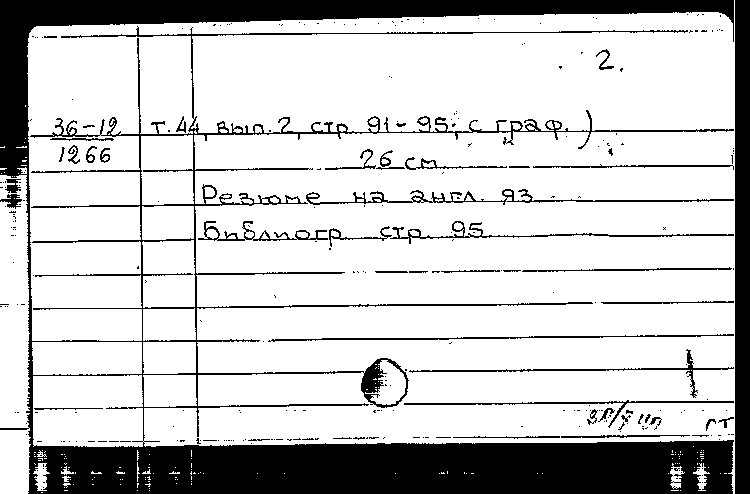 2.
36-12 т. 44, вып. 2, стр 91-95; с граф.)
1266 26 см
Резюме на англ. яз
Библиогр стр. 95